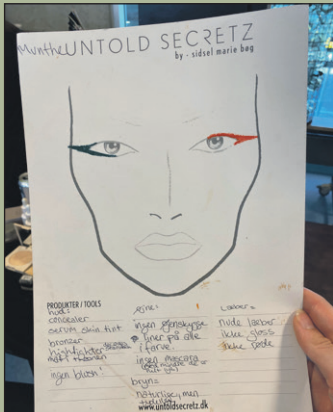 Munthe UNTOLD SECRETZ
by - sidsel marie bøg
PRODUKTER / TOOLS
hud=
concealer
serum skin tint
bronzer
highlighter
midt i panden
ingen blush!
øjne=
ingen øjenskygge
liner på alle
i farve
ingen mascara
bryn=
naturlige, men
læber=
nude læber
ikke gloss
ikke røde
www.untoldsecretz.dk